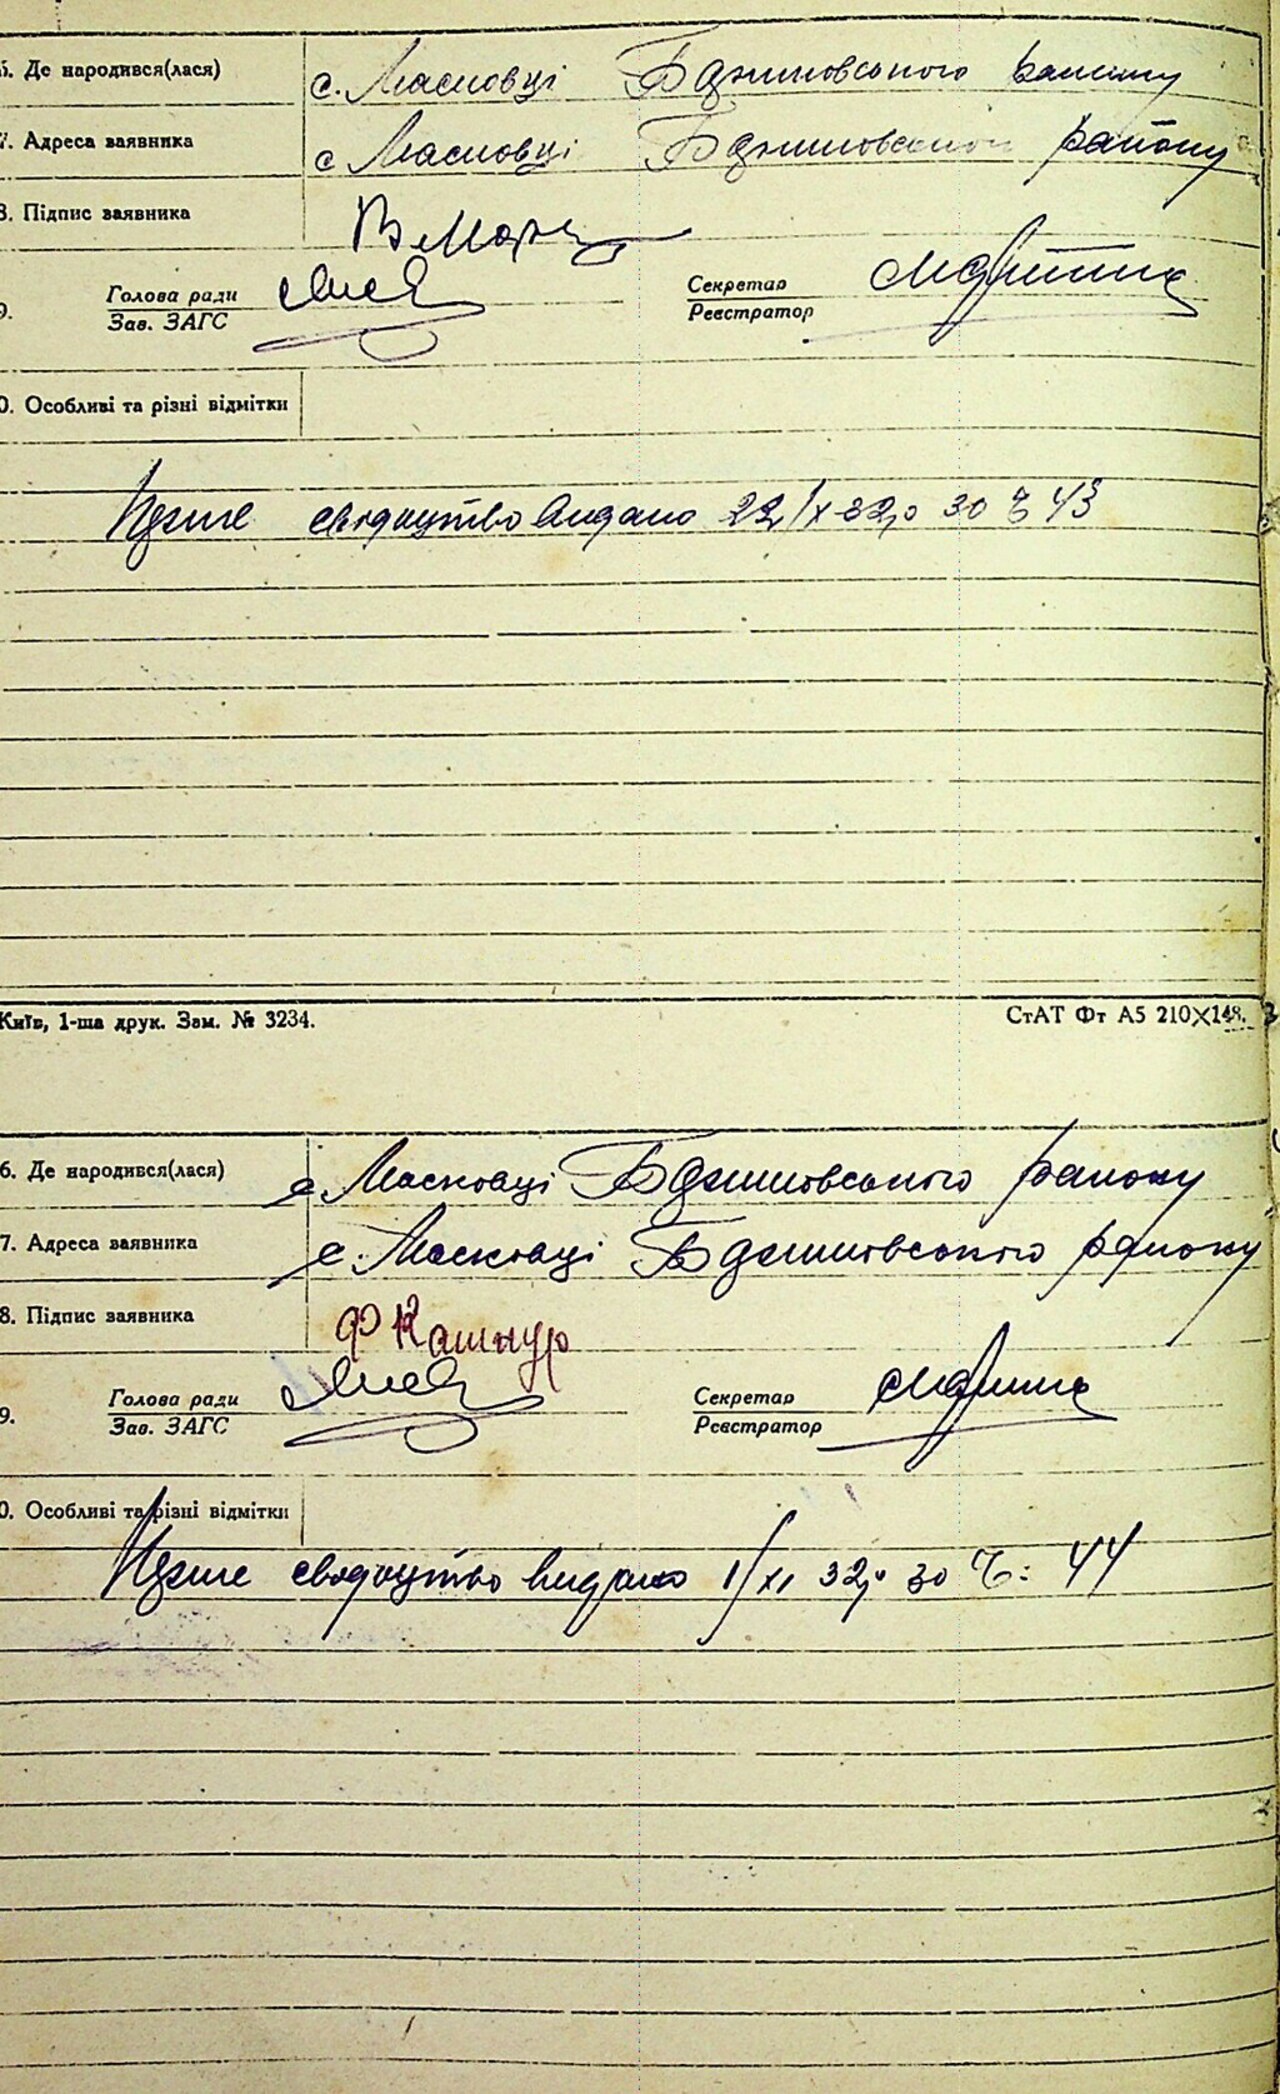 6. Де народився(лася) с. Масковці Барського району
7. Адреса заявника с Масковці району
8. Підпис заявника
9. Голова ради Секретар
Зав. ЗАГС Реєстратор
0. Особливі та різні відмітки
свідоцтво видано 22/X 32 р за № 43
Київ, 1-ша друк. Зам. № 3234. СтАТ Фт А5 210×148.
6. Де народився(лася) с Масковці району
7. Адреса заявника с. Масковці району
8. Підпис заявника Ф Кашнур
9. Голова ради Секретар
Зав. ЗАГС Реєстратор
0. Особливі та різні відмітки
свідоцтво видано 1/XI 32 р за № 44